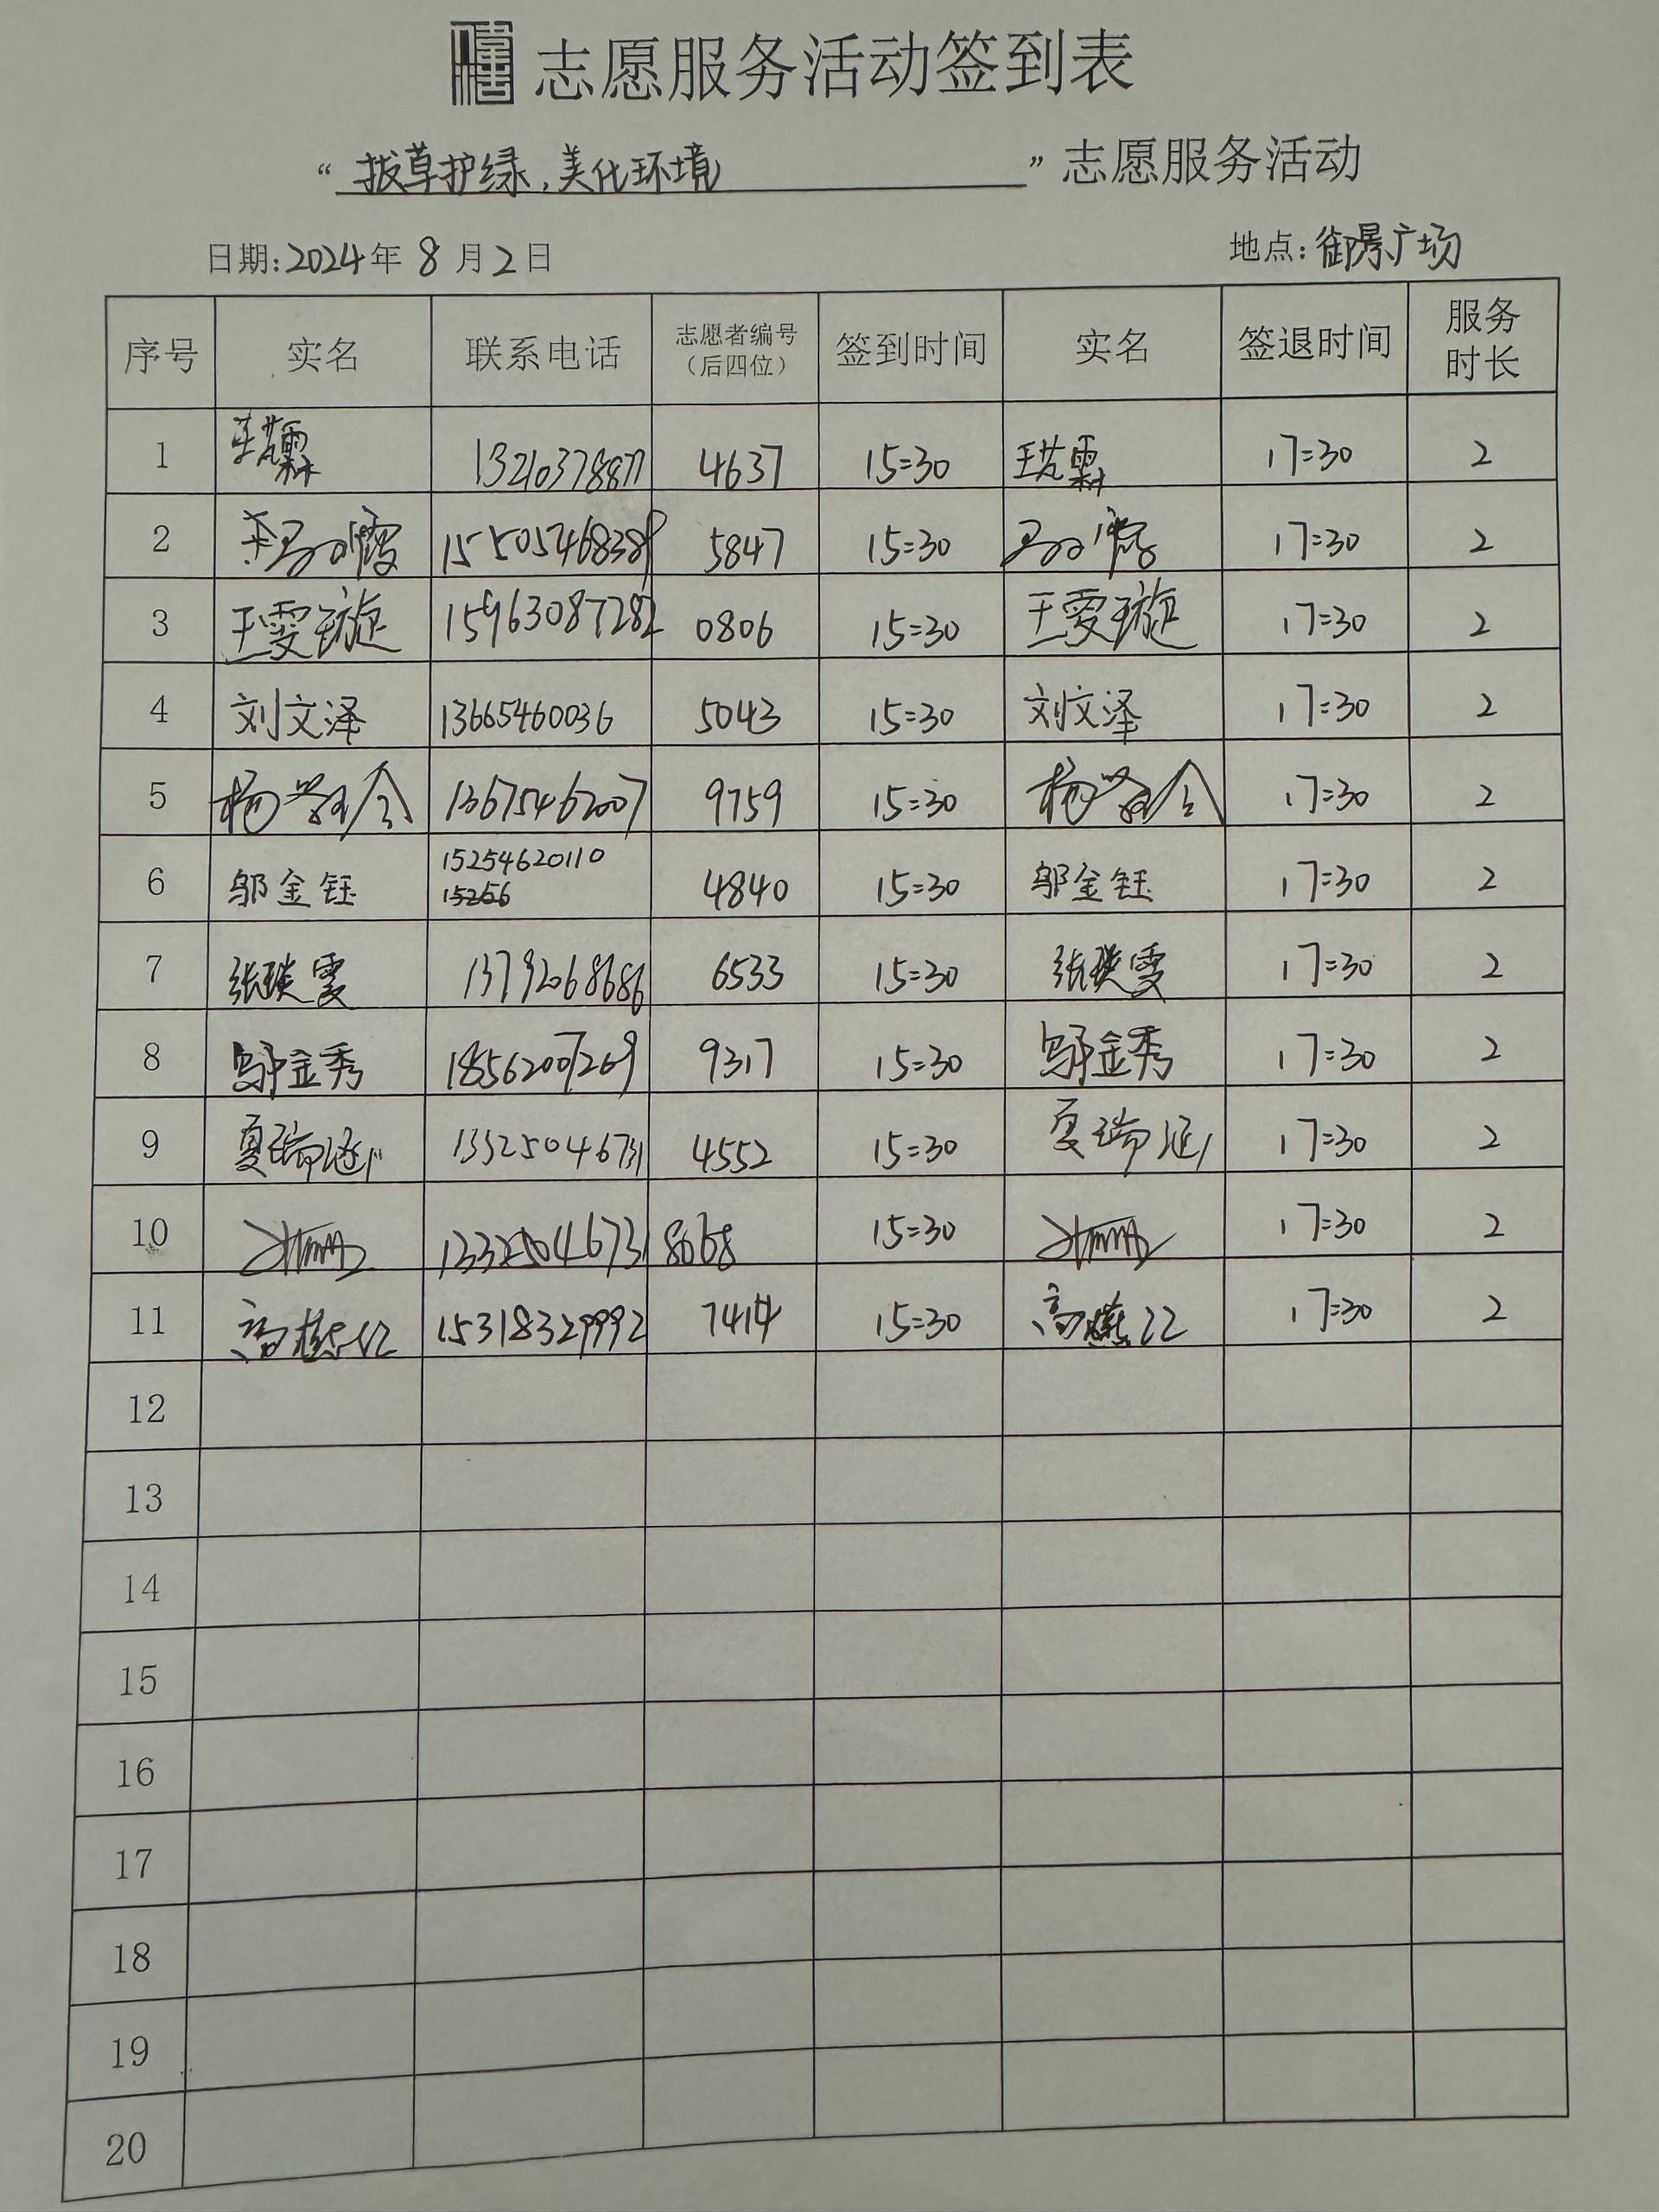 志愿服务活动签到表
“拔草护绿,美化环境”志愿服务活动
日期:2024年8月2日 地点:御景广场
序号 实名 联系电话 志愿者编号（后四位） 签到时间 实名 签退时间 服务时长
1 13210378877 4637 15:30 17:30 2
2 15505468389 5847 15:30 17:30 2
3 王雯璇 15963087282 0806 15:30 王雯璇 17:30 2
4 刘文泽 13665460036 5043 15:30 刘文泽 17:30 2
5 13675462007 9759 15:30 17:30 2
6 邬金钰 15254620110 4840 15:30 邬金钰 17:30 2
7 张瑛雯 13792068686 6533 15:30 张瑛雯 17:30 2
8 邬金秀 18562007269 9317 15:30 邬金秀 17:30 2
9 夏瑞涵 13325046731 4552 15:30 夏瑞涵 17:30 2
10 13325046731 8068 15:30 17:30 2
11 15318329992 7414 15:30 17:30 2
12
13
14
15
16
17
18
19
20